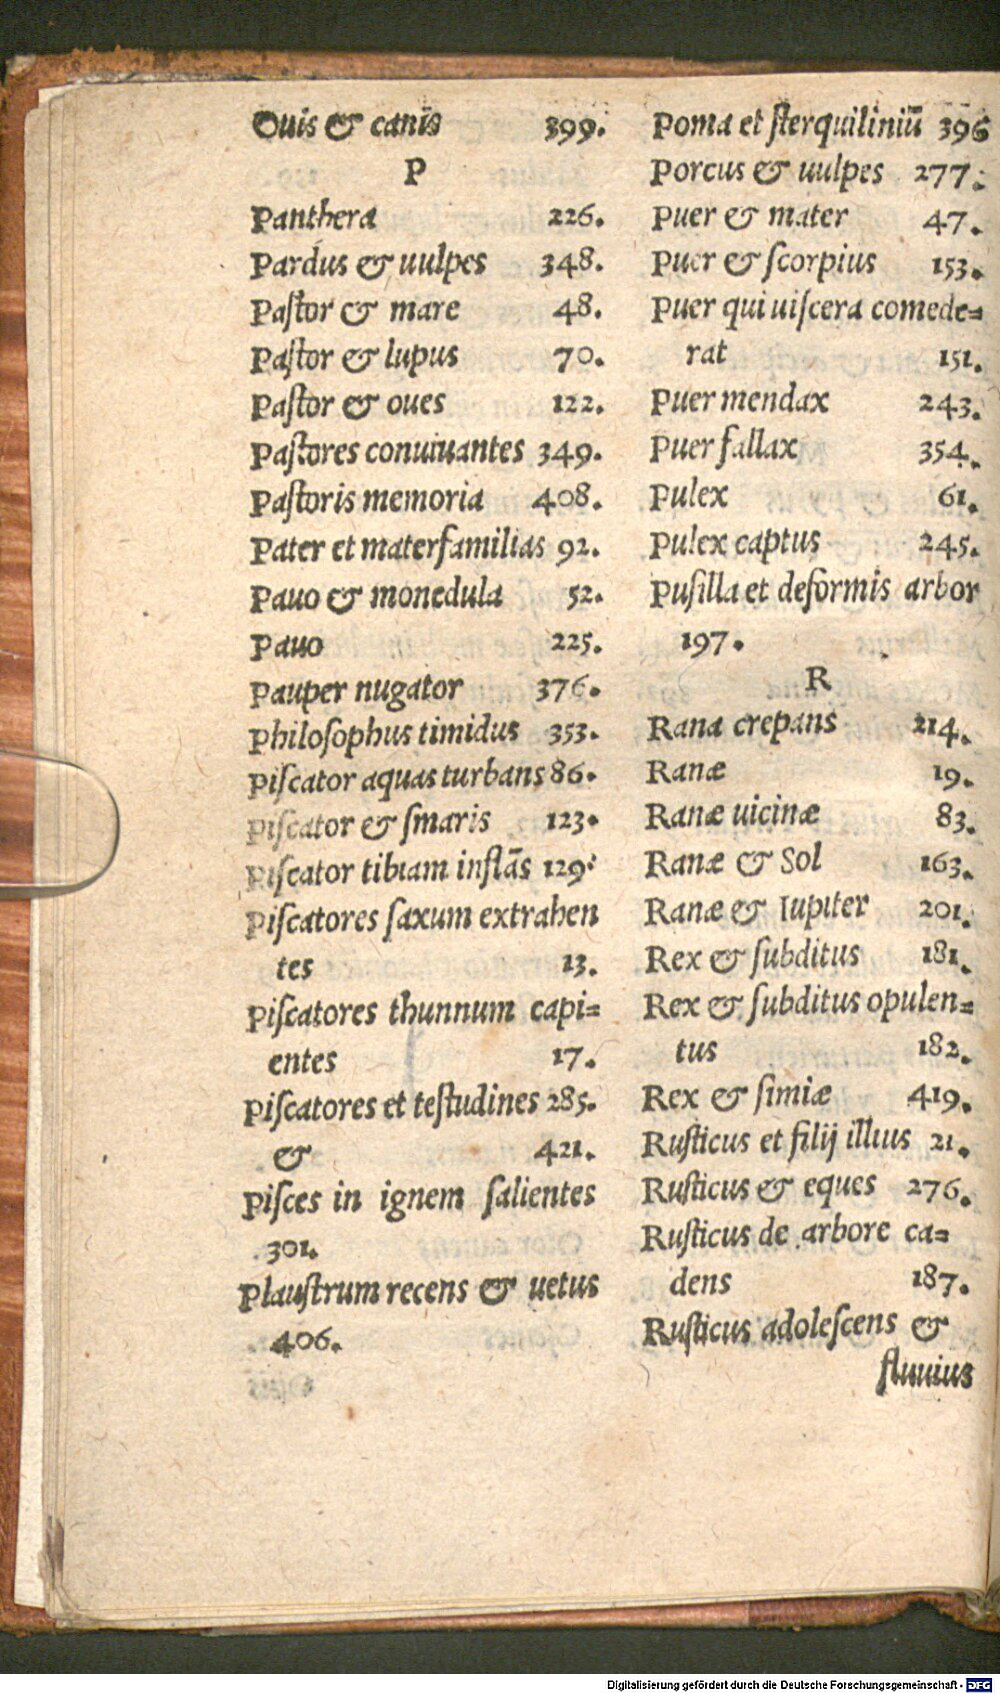 Ouis & canis 399.
P
Panthera 226.
Pardus & uulpes 348.
Paſtor & mare 48.
Paſtor & lupus 70.
Paſtor & oues 122.
Paſtores conuiuantes 349.
Paſtoris memoria 408.
Pater et materfamilias 92.
Pauo & monedula 52.
Pauo 225.
Pauper nugator 376.
Philoſophus timidus 353.
Piſcator aquas turbans 86.
Piſcator & ſmaris 123.
Piſcator tibiam inflās 129.
Piſcatores ſaxum extrahen
tes 13.
Piſcatores thunnum capi=
entes 17.
Piſcatores et teſtudines 285.
& 421.
Piſces in ignem ſalientes
301.
Plauſtrum recens & uetus
406.
Poma et ſterquiliniū 396
Porcus & uulpes 277.
Puer & mater 47.
Puer & ſcorpius 153.
Puer qui uiſcera comede=
rat 151.
Puer mendax 243.
Puer fallax 354.
Pulex 61.
Pulex captus 245.
Puſilla et deformis arbor
197.
R
Rana crepans 214.
Ranæ 19.
Ranæ uicinæ 83.
Ranæ & Sol 163.
Ranæ & Iupiter 201.
Rex & ſubditus 181.
Rex & ſubditus opulen=
tus 182.
Rex & ſimiæ 419.
Ruſticus et filij illius 21.
Ruſticus & eques 276.
Ruſticus de arbore ca=
dens 187.
Ruſticus adoleſcens &
fluuius
Digitalisierung gefördert durch die Deutsche Forschungsgemeinschaft - DFG